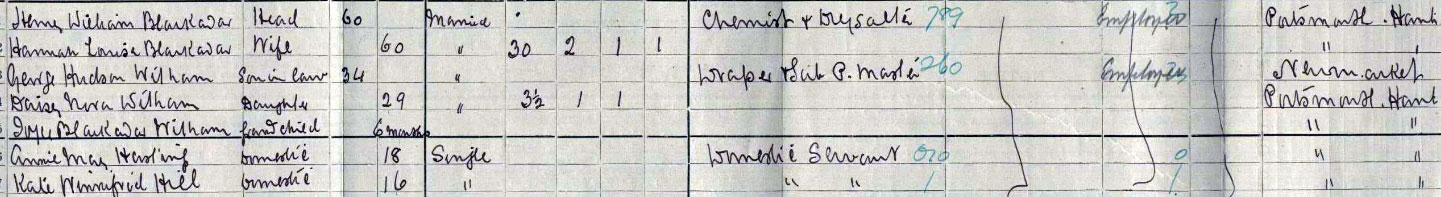 Henry William Blankadar Head 60 Married Chemist & Drysalter 789 Employer Portsmouth. Hants
Hannah Louisa Blankadar Wife 60 " 30 2 1 1 " "
George Hudson Witham Son in law 34 " Draper & Sub P. Master 260 Employer Newmarket
Daisey Nora Witham Daughter 29 " 3½ 1 1 Portsmouth. Hants
Blankadar Witham Grandchild 6 months " "
Annie May Harling Domestic 18 Single Domestic Servant 010 0 " "
Kate Winnifrid Hill Domestic 16 " " " 1 1 " "